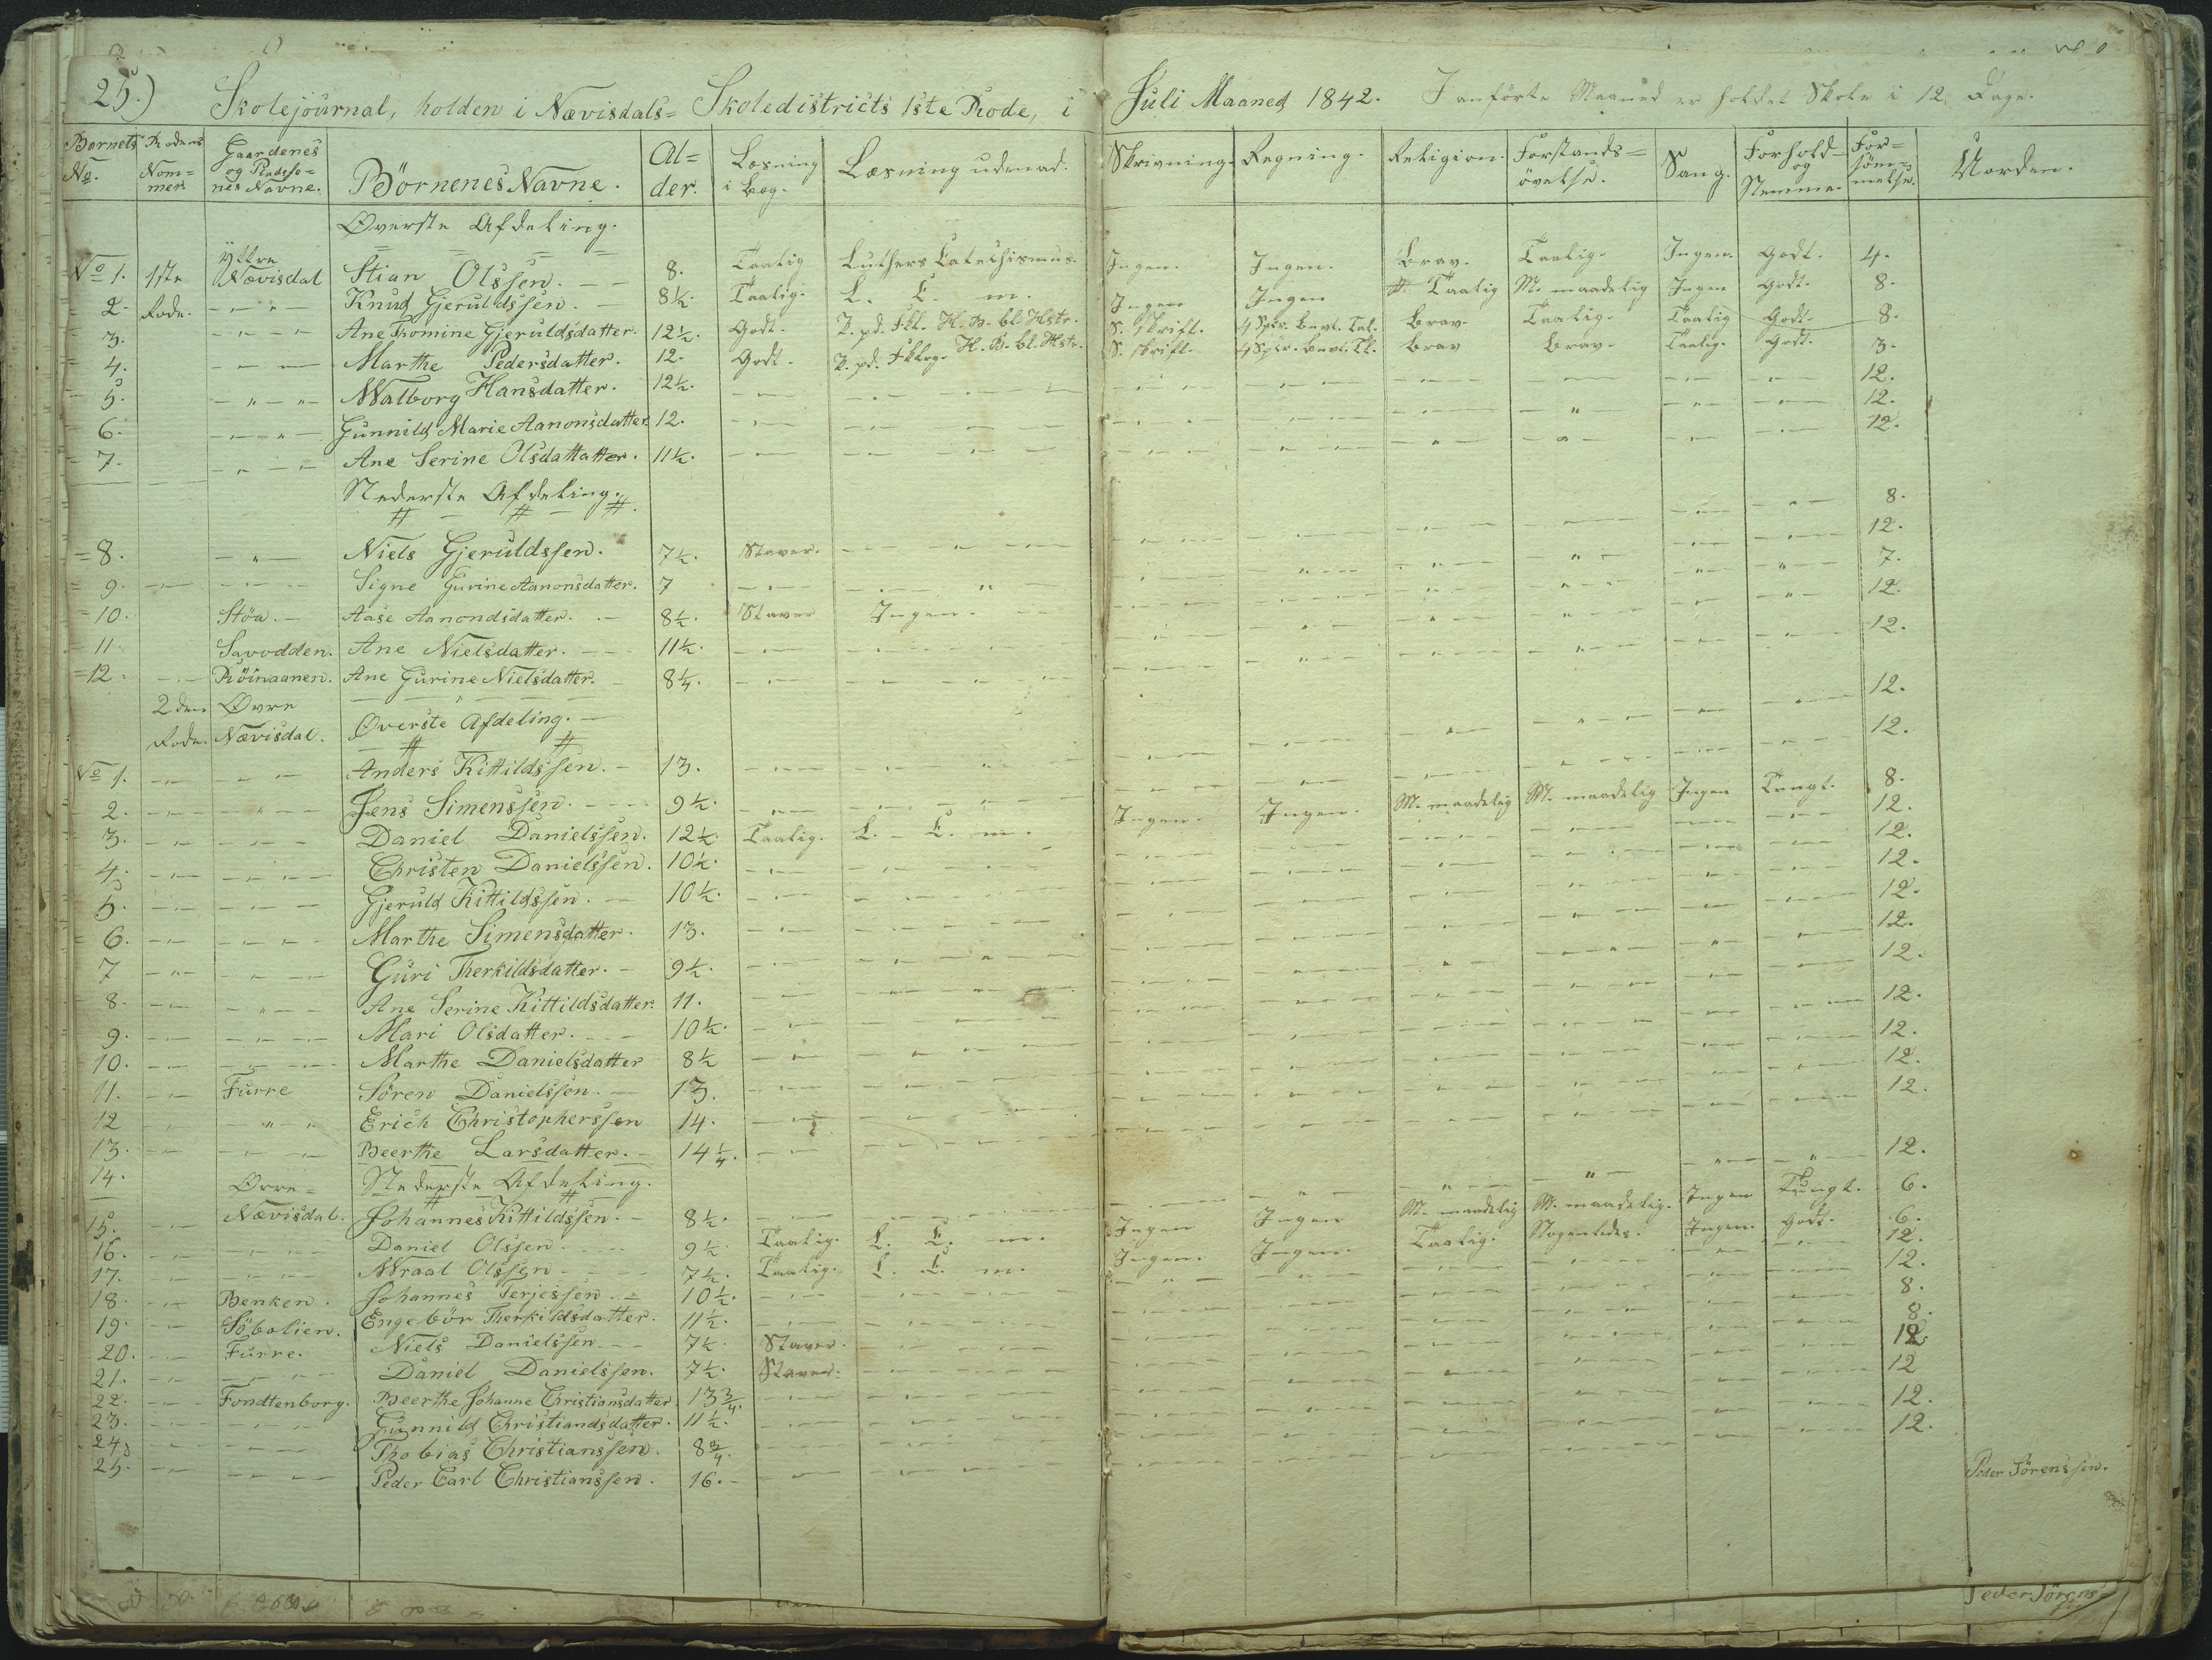 25.) Skolejournal, holden i Nævisdals= Skoledistricts 1ste Rode, i Juli Maaned 1842. I anførte Maaned er holdet Skole i 12 Dage.
Børnets No. Rodens Nommer Gaardenes og Pladsenes Navne. Börnenes Navne. Al=der. Læsning i Bog. Læsning udenad. Skrivning. Regning. Religion. Forstands=övelse. Sang. Forhold og Nemme. For=söm=melse. Uorden.
Øverste Afdeling.
No 1. 1ste Yttre Nævisdal Stian Olssen. 8. Taalig Luthers Catechismus. Ingen. Ingen. Brav. Taalig. Ingen. Godt. 4.
2. Rode. Knud Gjeruldssen. 8½. Taalig. L. C. m. Ingen Ingen Taalig M. maadelig Ingen Godt. 8.
3. Ane Tomine Gjeruldsdatter. 12½. Godt. S. Skrift. Brav. Taalig. Taalig Godt. 8.
4. Marthe Pedersdatter. 12. Godt. S. Skrift. Brav Brav. Taalig. Godt. 3.
5. Walborg Hansdatter. 12½. 12.
6. Gunnild Marie Aanonsdatter 12. 12.
7. Ane Serine Olsdattatter. 11½. 12.
Nederste Afdeling.
8. Niels Gjeruldssen. 7½. Staver. 8.
9. Signe Gurine Aanonsdatter. 7 12.
10. Stöa. Aase Aanondsdatter. 8½. Staver Ingen. 7.
11 Savodden. Ane Nielsdatter. 11½. 12.
12. Röinaanen. Ane Gurine Nielsdatter. 8¼. 12.
2den Rode. Øvre Nævisdal. Øverste Afdeling.
No 1. Anders Kittildssen. 13. 12.
2. Jens Simenssen. 9½. 12.
3. Daniel Danielssen. 12½. Taalig. L. C. m. Ingen. Ingen. M. maadelig M. maadelig Ingen Tungt. 8.
4. Christen Danielssen. 10½. 12.
5. Gjeruld Kittildssen. 10½. 12.
6. Marthe Simensdatter. 13. 12.
7 Guri Therkildsdatter. 9½. 12.
8. Ane Serine Kittildsdatter. 11. 12.
9. Mari Olsdatter. 10½. 12.
10. Marthe Danielsdatter 8½ 12.
11. Furre Sören Danielssen. 13. 12.
12 Erich Christopherssen 14. 12.
13. Beerthe Larsdatter. 14¼. 12.
14. Øvre= Nævisdal. Nederste Afdeling.
15. Johannes Kittildssen. 8½. 12.
16. Daniel Olssen. 9½ Taalig. L. C. m. Ingen Ingen M. maadelig M. maadelig. Ingen Tungt. 6.
17. Wraal Olssen 7½. Taalig. L. C. m. Ingen. Ingen. Taalig. Nogenledes. Ingen. Godt. 6.
18. Benken. Johannes Terjessen. 10½. 12.
19. Söbolien. Engebör Therkildsdatter. 11½. 12.
20. Furre. Niels Danielssen 7½. Staver. 8.
21. Daniel Danielssen. 7½. Staver. 8.
22. Fondtenborg. Beerthe Johanne Christiansdatter. 13¾. 12.
23. Gunnild Christiandsdatter. 11½. 12
24. Thobias Christianssen. 8¾. 12.
25. Peder Carl Christianssen. 16. 12.
Peder Sörenssen.
Peder Sörens=